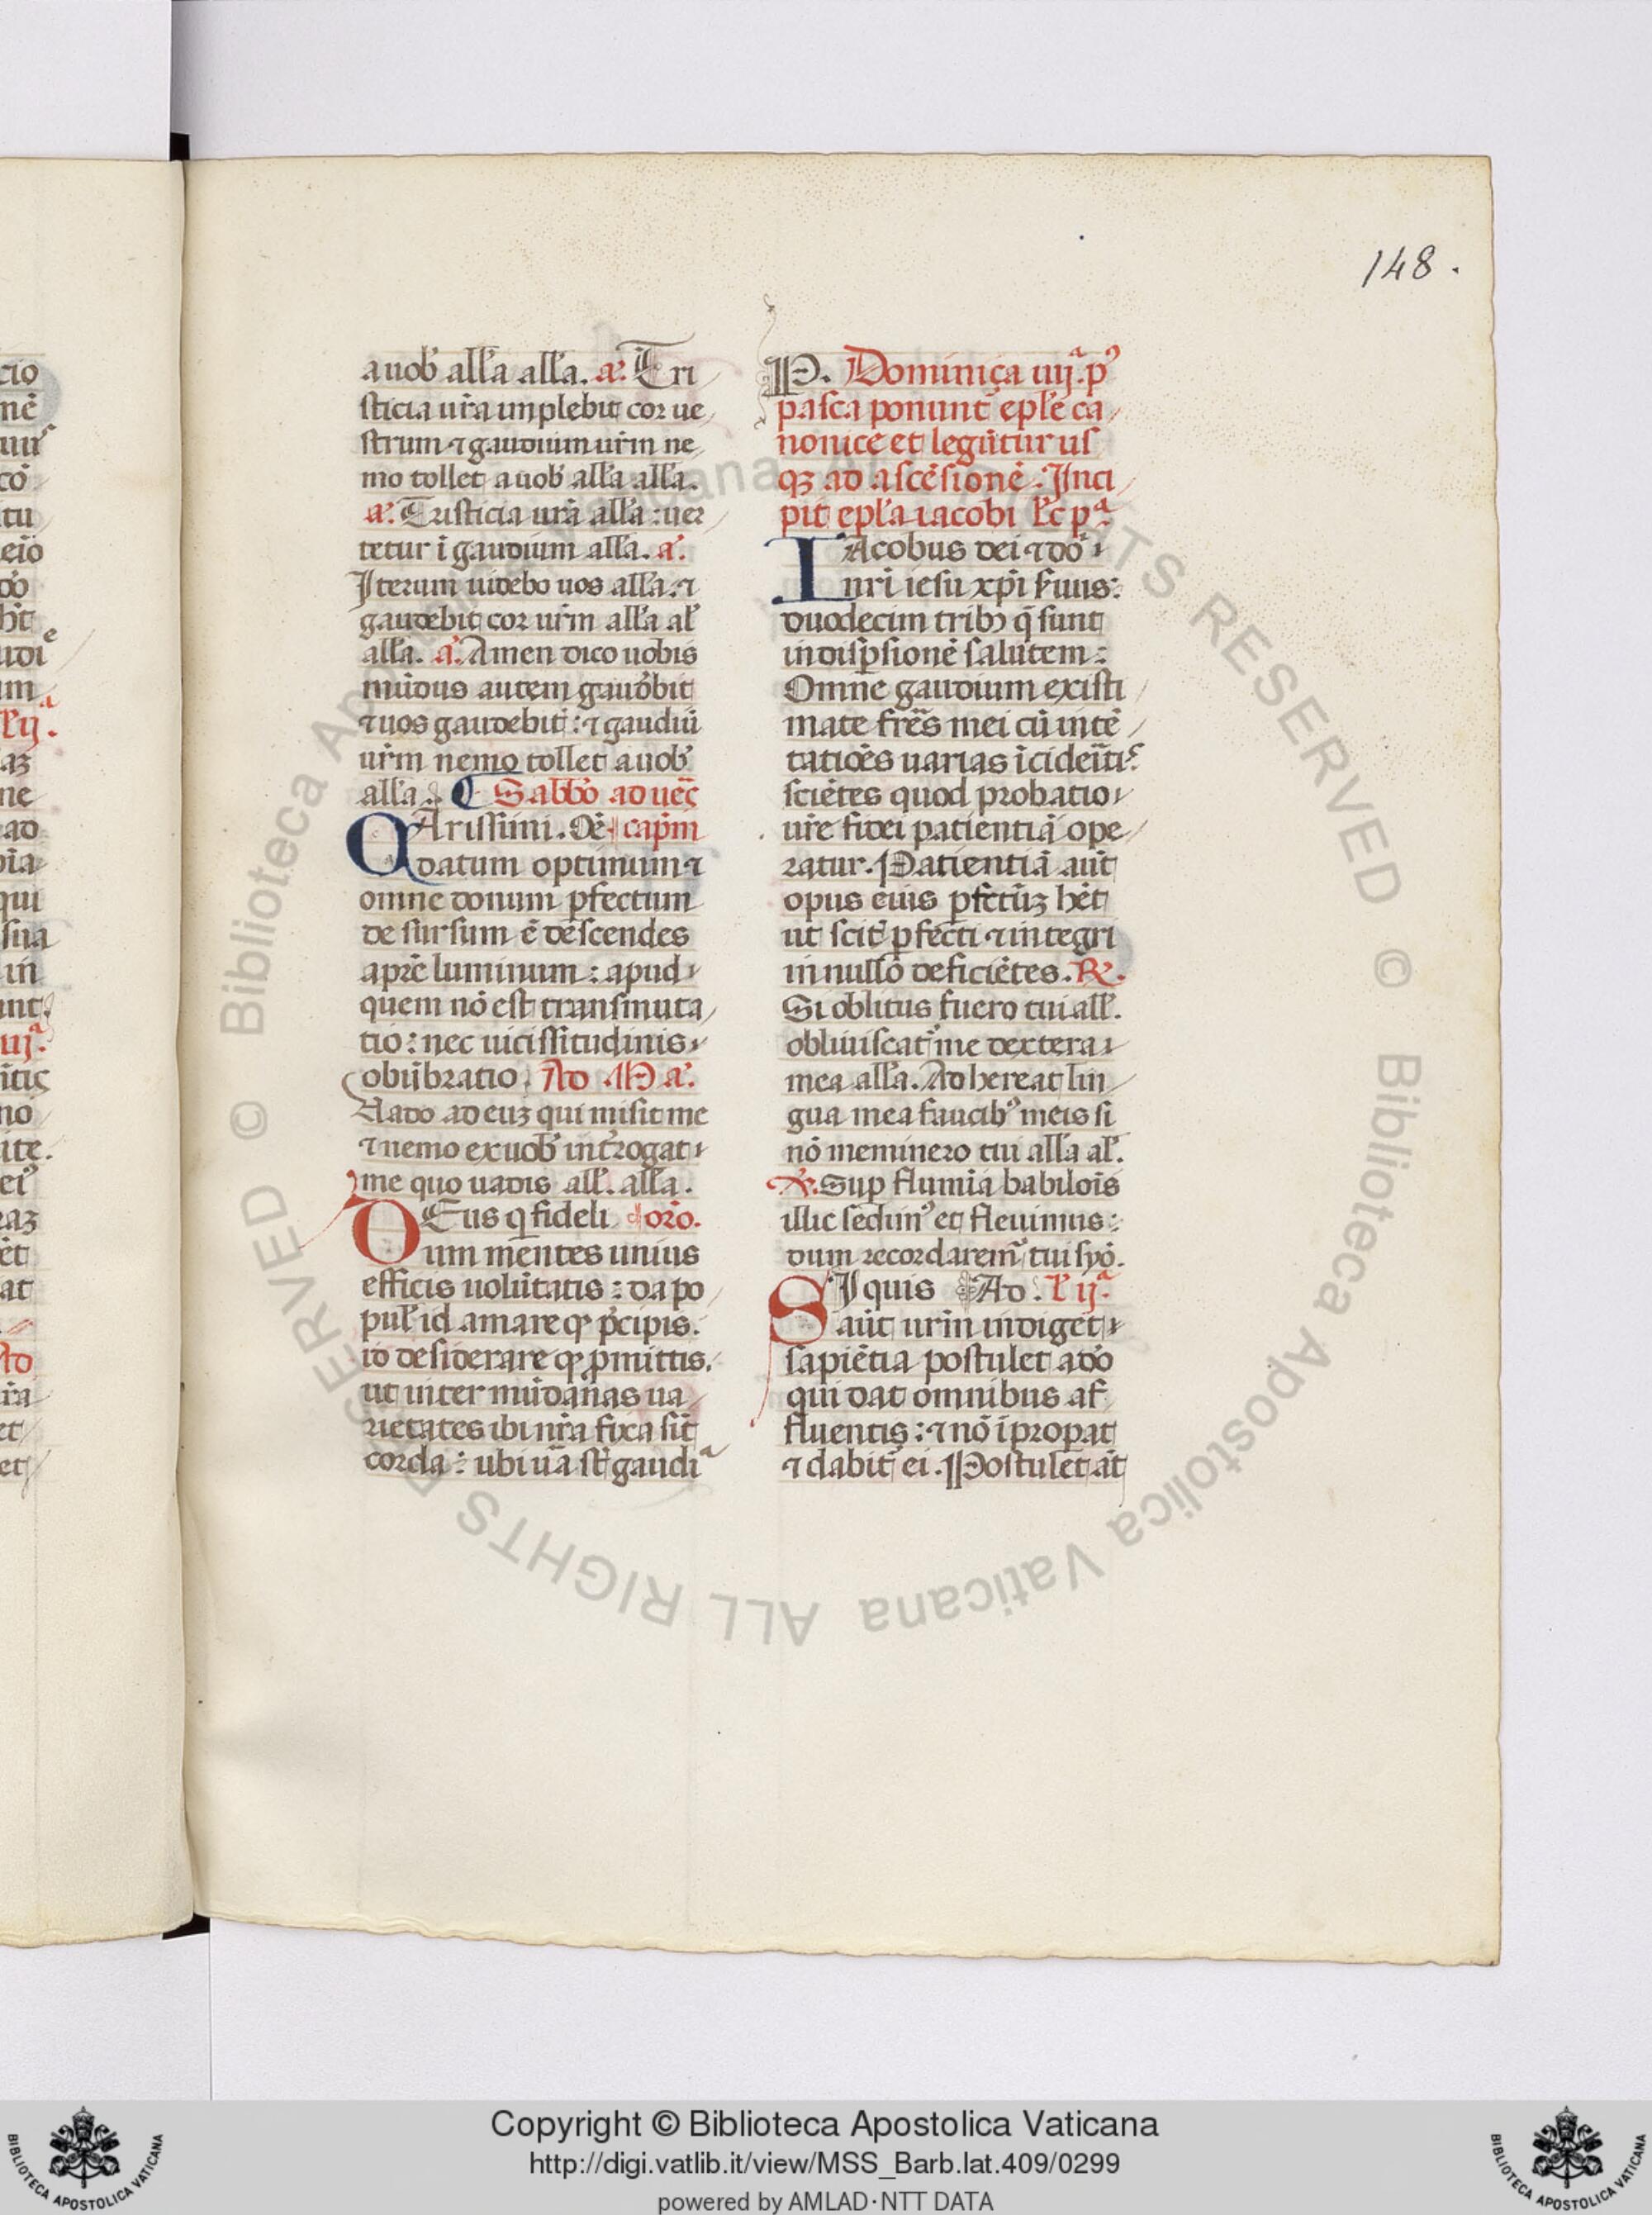 148.
a uob̕ all̕a all̕a. a͛. Tri
sticia ur̄a implebit cor ue
strum ⁊ gaudium ur̄m ne
mo tollet a uob̕ all̕a all̕a.
a͛. Tristicia ur̄a all̕a : uer
tetur ī gaudium all̕a. a͛.
Iterum uidebo uos all̕a. ⁊
gaudebit cor ur̄m all̕a al̕
all̕a. a͛. Amen dico uobis
mūdus autem gaud̓bit
⁊ uos gaudebit̕ : ⁊ gaudiū
ur̄m nemo tollet a uob̕
all̕a. ¶ Sabb̓o ad uēs̄
CArissimi. Oē. cap̄m
datum optimum ⁊
omne donum ꝑfectum
de sursum ē dēscendes
a pr̄e luminum : apud
quem nō est transmuta
tio : nec uicissitudinis
obūbratio. Ad .M. a͛.
Uado ad euꝫ qui misit me
⁊ nemo ex uob̕ int̓rogat
me quo uadis all̕. all̕a.
DEus q̄ fideli or̄o.
um mentes unius
efficis uolūtatis : da po
pul̕ id amare qͦ p̓cipis.
id desiderare qͦ ꝓmittis.
ut inter mūdanas ua
rietates ibi nr̄a fixa sit̄
corda : ubi ūa st̄ gaudiᵃ
P. Dominica iiijᵃ. p᷒
pasca ponunt̕ epl̕e ca
nonice et legūtur us
qꝫ ad ascēsionē. Inci
pit epl̕a iacobi l̕c pᵃ
IAcobus dei ⁊ dō
nr̄i iesu xp̄i s̕uus :
duodecim tribꝫ q̄ sunt
in disp̄sionē salutem :
Omne gaudium existi
mate fr̄es mei cū in tē
tatiōes uarias īcidēt̄iˢ
sciētes quod probatio
ur̄e fidei patientiā ope
ratur. Patientiā aūt
opus euis ꝑfc̄tūꝫ hēt
ut sit̄ ꝑfecti ⁊ integri
in nullo deficiētes. ℞.
Si oblitus fuero tui all̕.
obliuiscat᷑ me dextera
mea all̕a. Adhereat lin
gua mea faucib᷒ meis si
nō meminero tui all̕a al̕.
℣. Suꝑ flumīa babilōis
illic sedim᷒ et fleuimus :
dum recordarem᷒ tui syō.
SI quis Ad. l̕ ijᵃ.
aūt ur̄m indiget
sapiētia postulet a d̓o
qui dat omnibus af
fluentis : ⁊ nō īpropat
⁊ dabit᷑ ei. Postulet āt
Copyright © Biblioteca Apostolica Vaticana
http://digi.vatlib.it/view/MSS_Barb.lat.409/0299
powered by AMLAD·NTT DATA